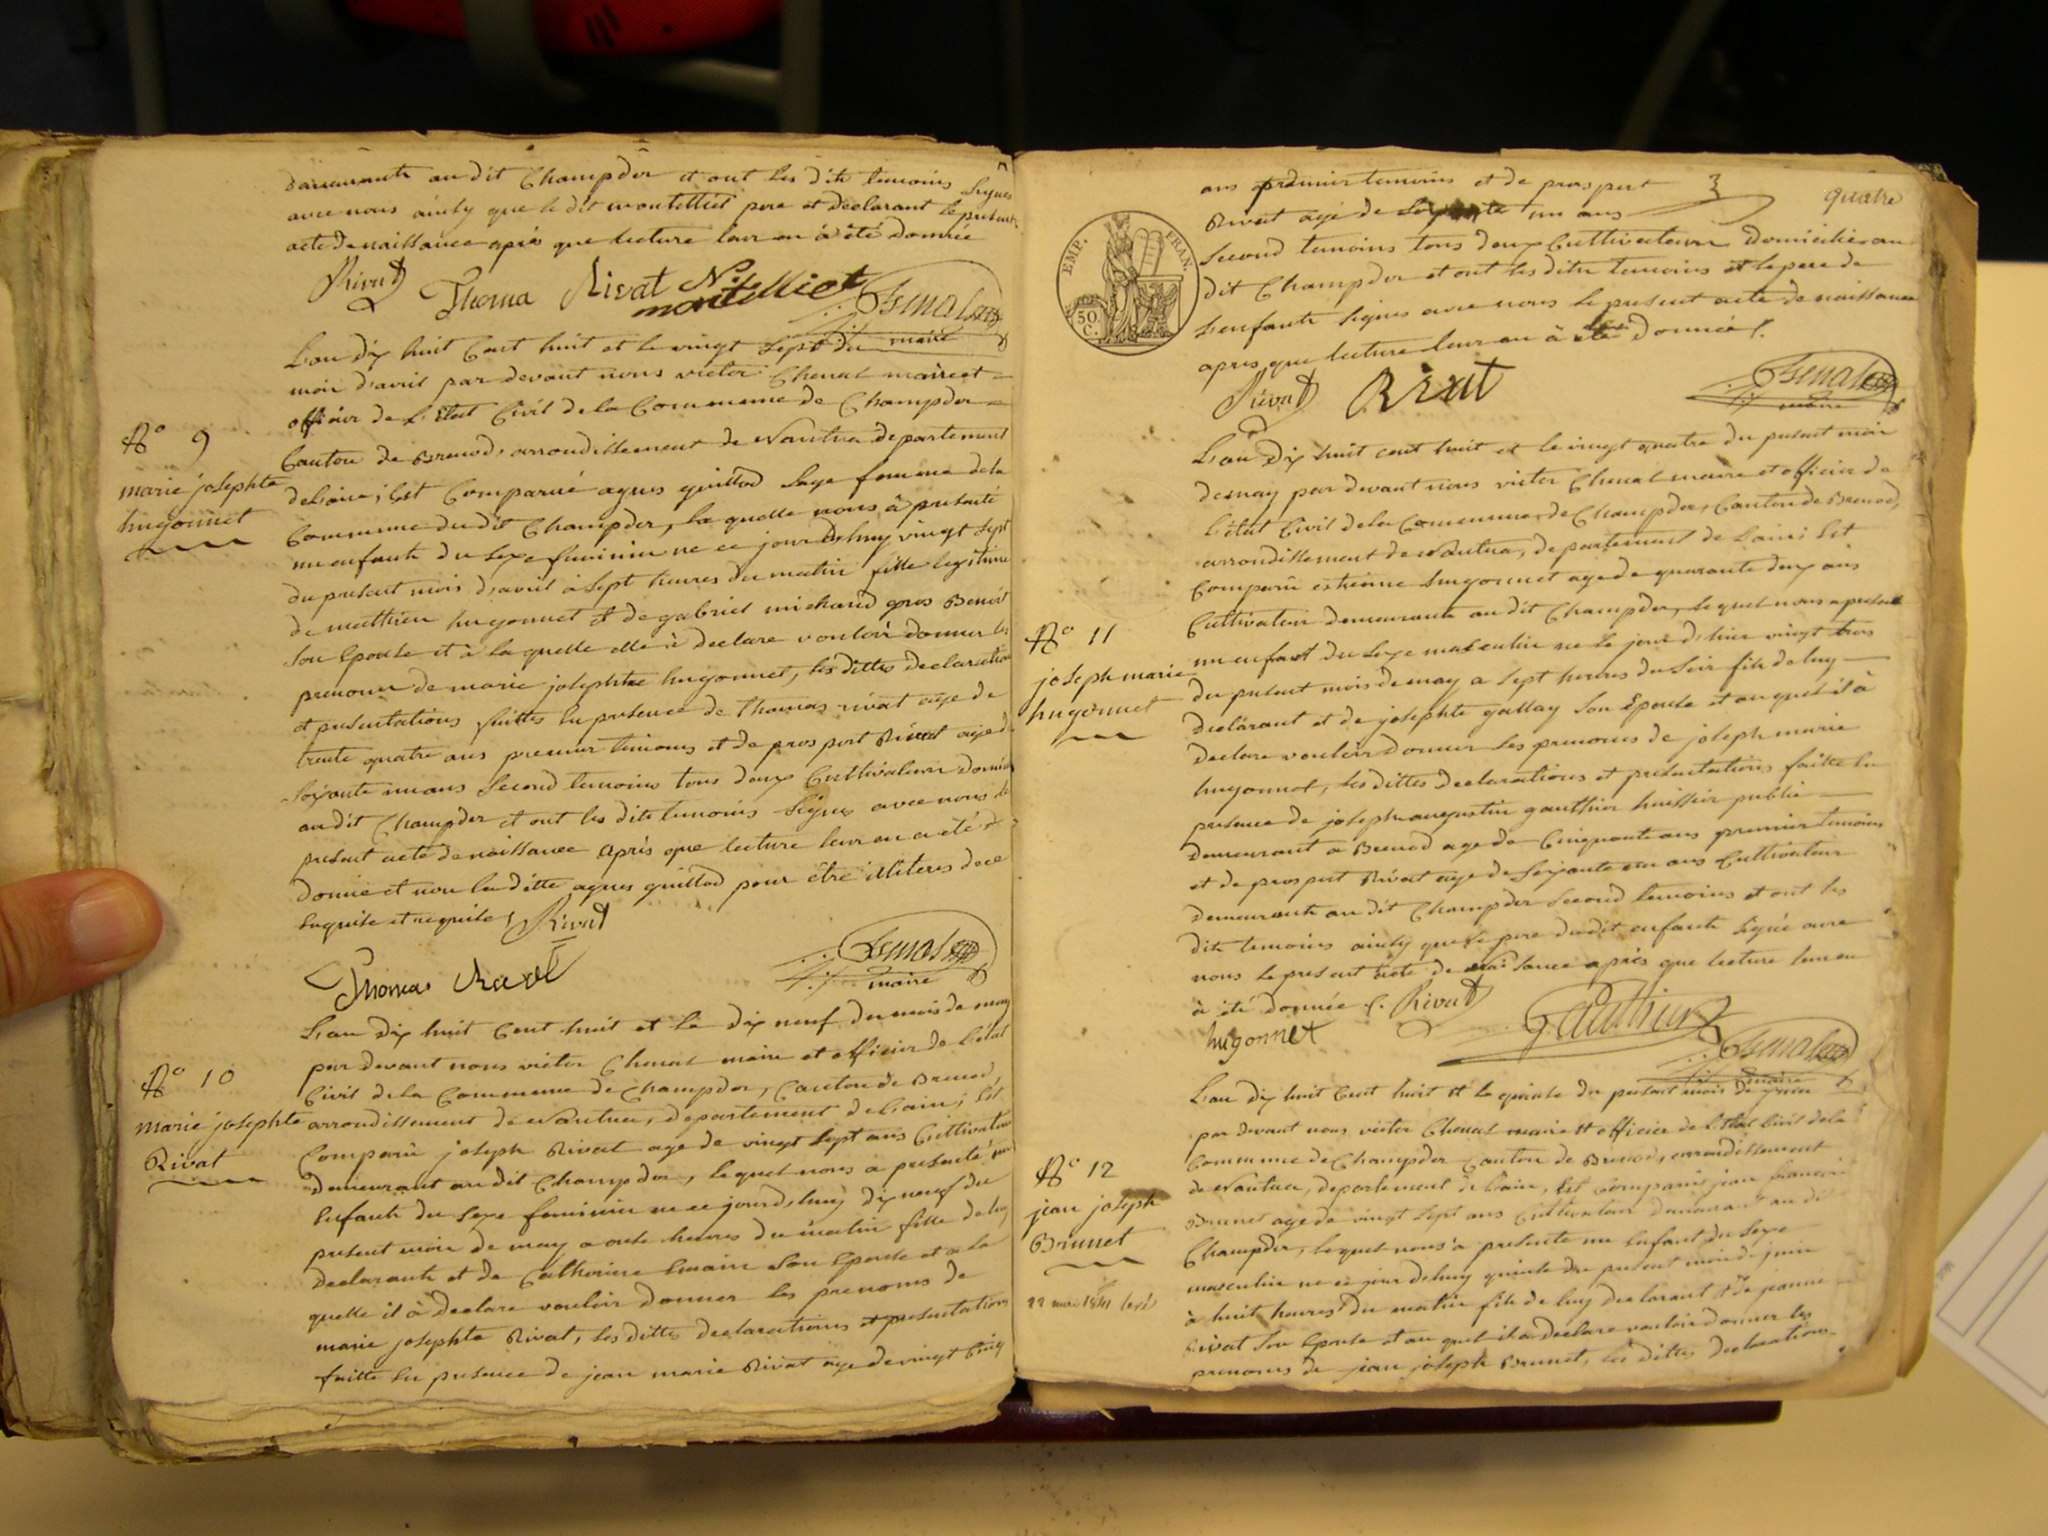 demeurante au dit Champdor et ont les dits temoins signes
avec nous ainsy que le dit montelliet pere et declarant le present
acte de naissance après que lecture leur en à été donnée
Rivat Thoma Rivat
montelliet
maire
N° 9
marie josephte
hugonnet
L'an dix huit cent huit et le vingt sept du
mois d'avril par devant nous victor Chenal maire et
officier de l'état Civil de la Commune de Champdor
Canton de Brenod, arrondissement de Nantua departement
de l'ain; est Comparue agnes guillod sage femme de la
Commune du dit Champdor, la quelle nous à presenté
un enfante du sexe feminin ne ce jour d'huy vingt sept
du present mois d'avril à sept heures du matin fille legitime
de mathieu hugonnet et de gabriel michaud gros Benoit
son epouse et à la quelle elle à declare vouloir donner les
prenoms de marie josephte hugonnet, les dittes declarations
et presentations faittes en presence de Thomas rivat age de
trente quatre ans premier temoins et de prospert Rivat age de
soixante un ans second temoins tous deux Cultivateurs
au dit Champdor et ont les dits temoins signes avec nous le
present acte de naissance après que lecture leur en a été
donnée et non la ditte agnes guillod pour être illiteres de ce
enquise et requise Rivat
Thomas Rivat
maire
N° 10
marie josephte
Rivat
L'an dix huit cent huit et le dix neuf du mois de may
par devant nous victor Chenal maire et officier de l'etat
Civil de la Commune de Champdor, Canton de Brenod,
arrondissement de Nantua, departement de l'ain; est
Comparu joseph Rivat age de vingt sept ans Cultivateur
demeurant au dit Champdor, lequel nous a presenté un
enfante du sexe feminin ne ce jourd'huy dix neuf du
present mois de may a onze heures du matin fille de luy
declarante et de Catherine son epouse et a la
quelle il à declare vouloir donner les prenoms de
marie josephte Rivat, les dittes declarations et presentations
faitte en presence de jean marie Rivat age de vingt cinq
quatre
EMP. FRAN.
50 C.
ans premier temoins et de prospert
Rivat age de soixante un ans
second temoins tous deux Cultivateurs domicilies au
dit Champdor et ont les dits temoins et le pere de
l'enfante signes avec nous le present acte de naissance
apres que lecture leur en à été donnée
Rivat Rivat
maire
N° 11
joseph marie
hugonnet
L'an dix huit cent huit et le vingt quatre du present mois
de may par devant nous victor Chenal maire et officier de
l'état Civil de la Commune de Champdor, Canton de Brenod,
arrondissement de Nantua, departement de l'ain; est
Comparu estienne hugonnet age de quarante deux ans
Cultivateur demeurante au dit Champdor, lequel nous a presenté
un enfant du sexe masculin ne le jour d'hier vingt trois
du present mois de may a sept heures du soir fils de luy
declarant et de josephte gallay son epouse et au quel il à
declare vouloir donner les prenoms de joseph marie
hugonnet, les dittes declarations et presentations faitte en
presence de joseph augustin gauthier huissier public
demeurant a Brenod age de Cinquante ans premier temoins
et de prospert Rivat age de soixante un ans Cultivateur
demeurante au dit Champdor second temoins et ont les
dits temoins ainsy que le pere du dit enfante signé avec
nous le present acte de naissance après que lecture leur en
à été donnée Rivat
hugonnet Gauthier
maire
N° 12
jean joseph
Brunet
L'an dix huit cent huit et le quinze du present mois de juin
par devant nous victor Chenal maire et officier de l'état Civil de la
Commune de Champdor Canton de Brenod, arrondissement
de Nantua, departement de l'ain, est Comparu jean francois
Brunet age de vingt sept ans Cultivateur demeurant au dit
Champdor, lequel nous a presente un enfant du sexe
masculin ne ce jour d'huy quinze du present mois de juin
à huit heures du matin fils de luy declarant et de jeanne
rivat son epouse et au quel il a declare vouloir donner les
prenoms de jean joseph Brunet, les dittes declarations